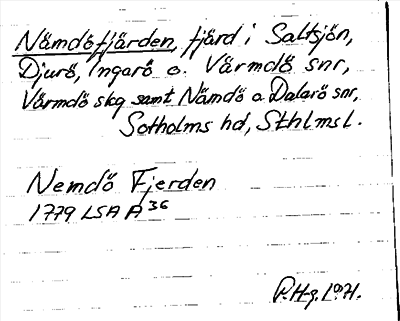 Nämdöfjärden, fjärd i Saltsjön,
Djurö, Ingarö o. Värmdö snr,
Värmdö skg samt Nämdö o Dalarö snr,
Sotholms hd, Sthlms l.
Nemdö Fjerden
1779 LSA A 36
P.H-g. 1971.